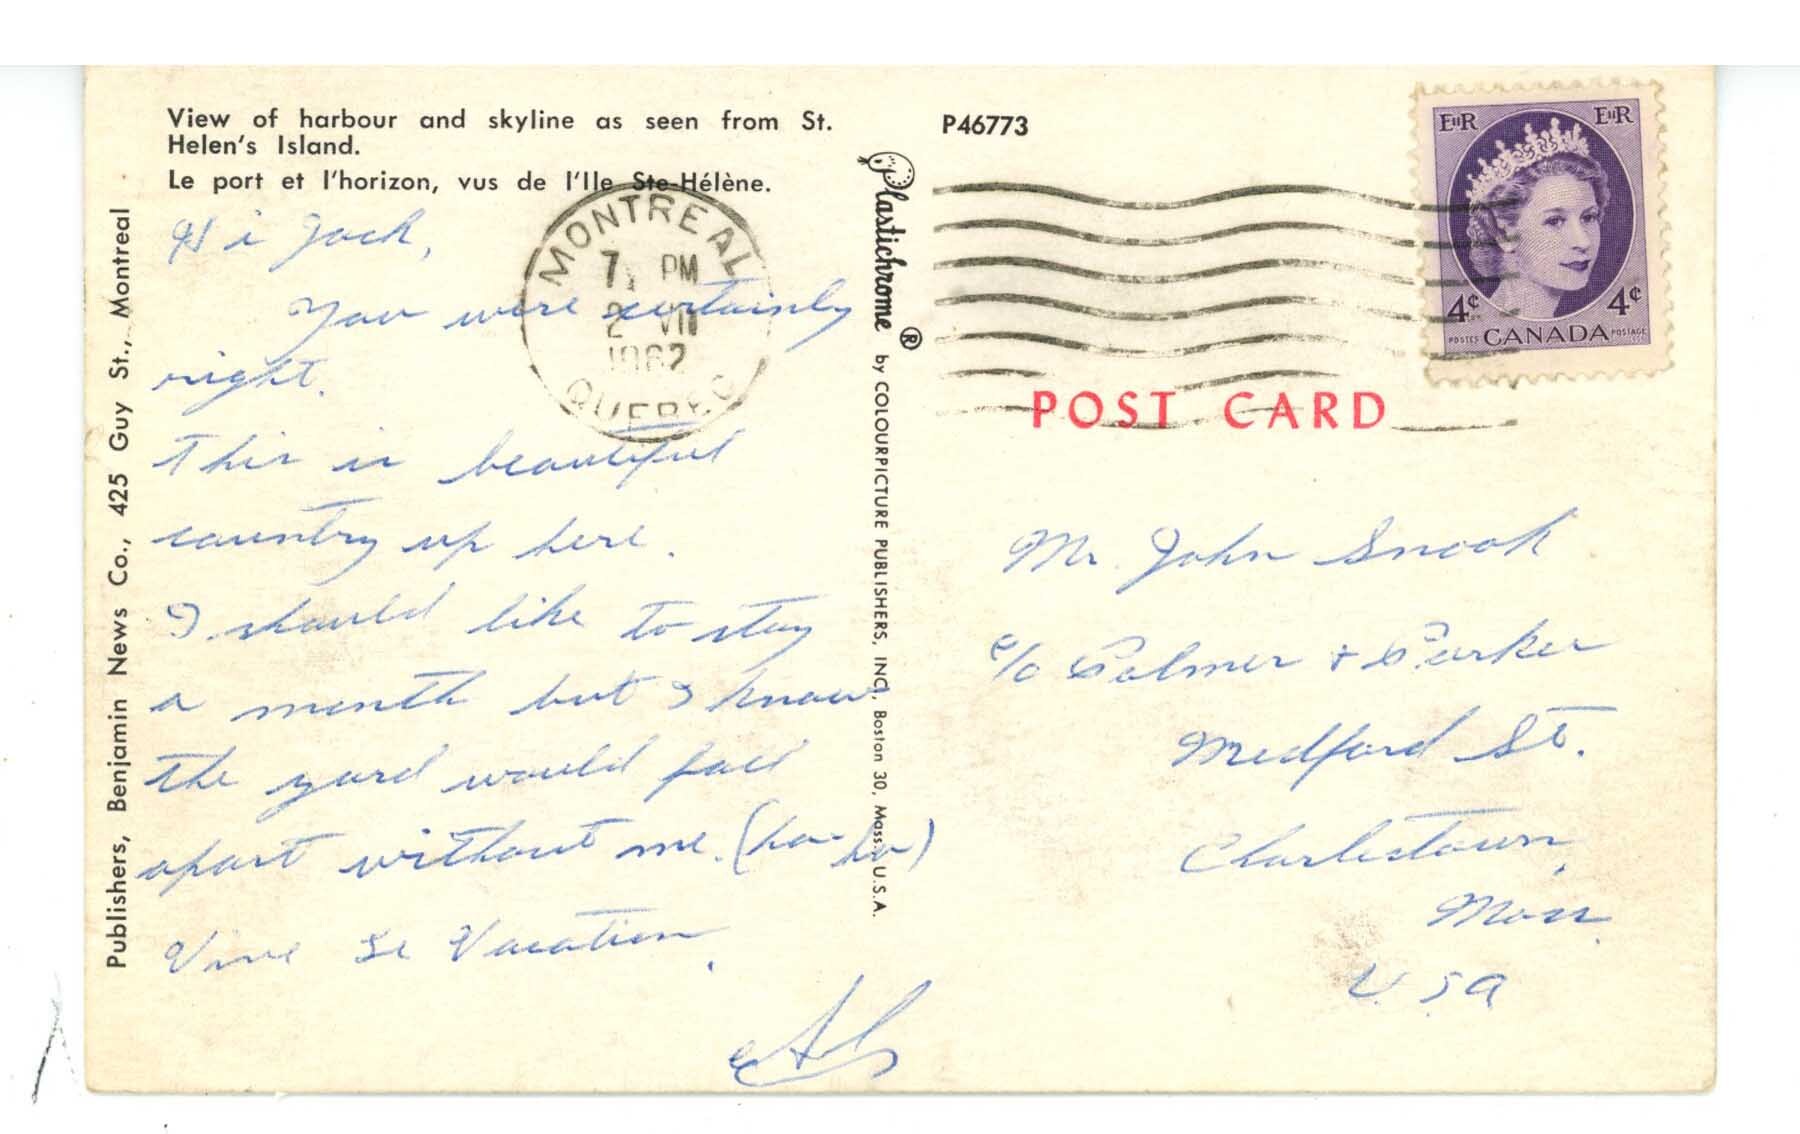 View of harbour and skyline as seen from St.
Helen's Island.
Le port et l'horizon, vus de l'Ile Ste-Hélène.
P46773
Publishers, Benjamin News Co., 425 Guy St., Montreal
Plastichrome ® by COLOURPICTURE PUBLISHERS, INC., Boston 30, Mass. U.S.A.
MONTREAL
7 PM
2 VII
1962
QUEBEC
EIIR EIIR
4¢ 4¢
POSTES CANADA POSTAGE
POST CARD
Hi Jack,
You were certainly
right.
This is beautiful
country up here.
I should like to stay
a month but I know
the yard would fall
apart without me. (ha-ha)
Vive Le Vacation.
Al
Mr. John Snook
c/o Palmer & Parker
Medford St.
Charlestown,
Mass.
U.S.A